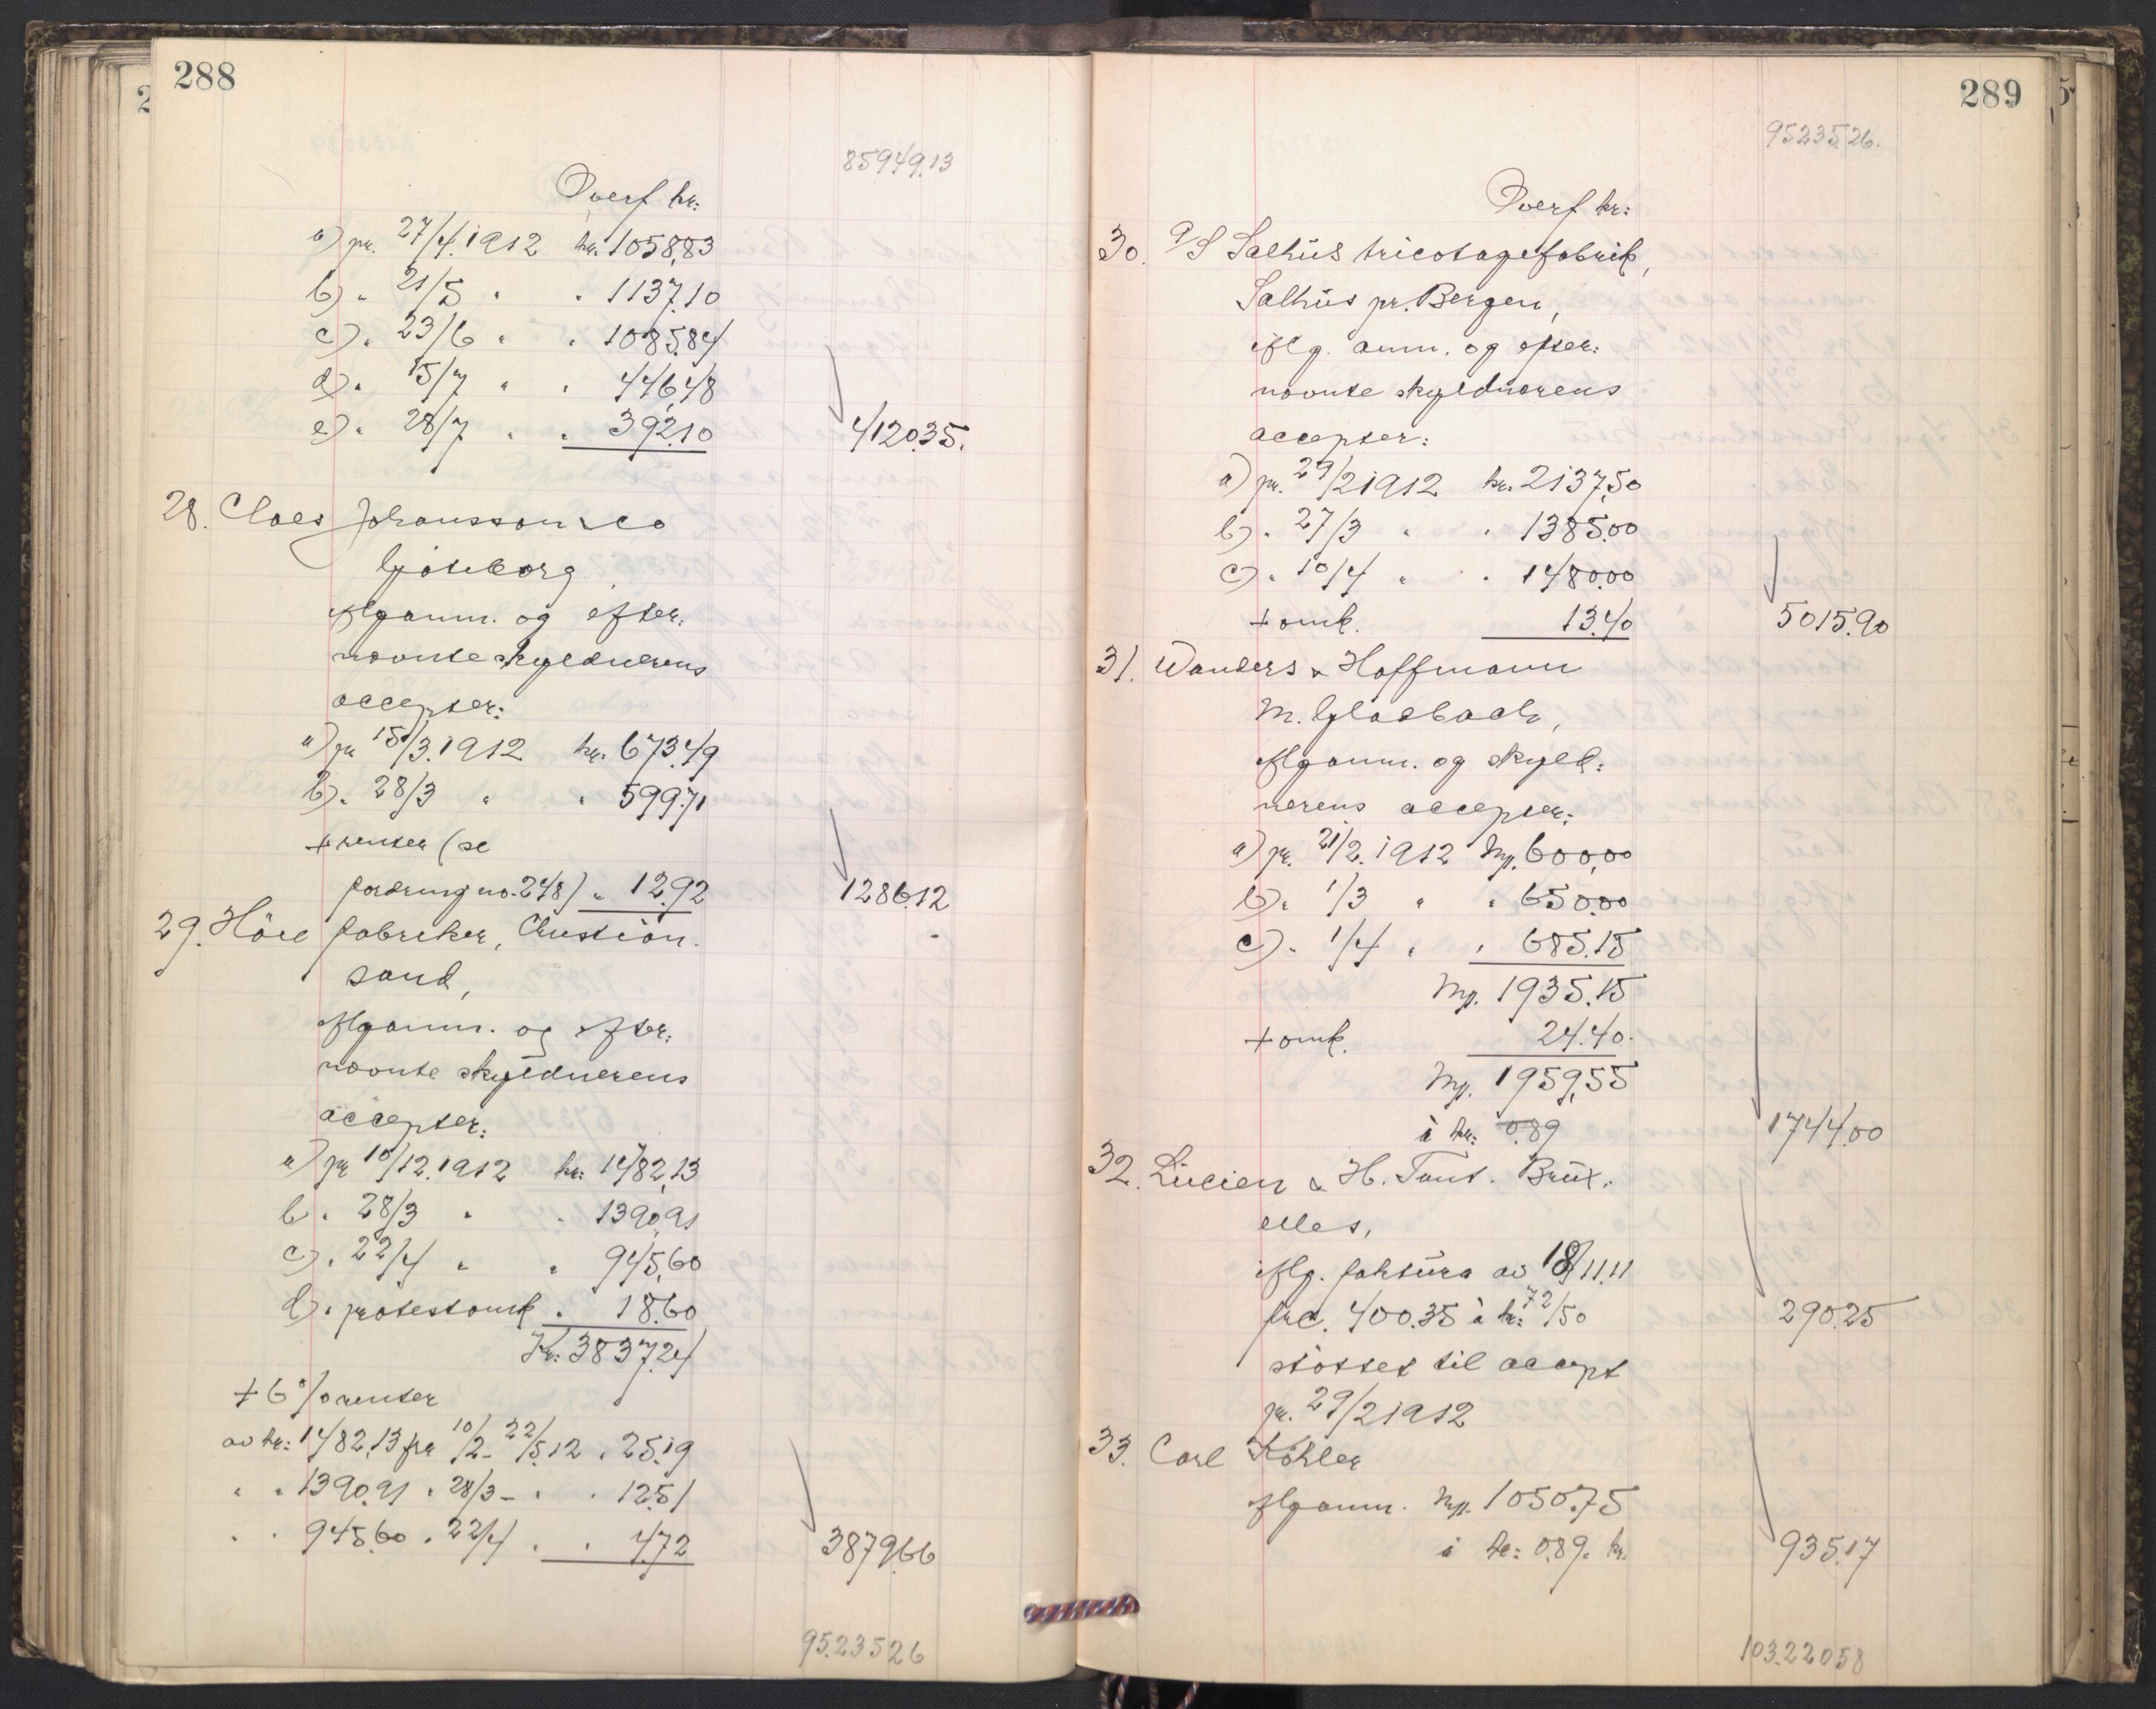 288
85949.13
Overf kr:
a) pr. 27/4.1912 kr. 1058,83
b) " 21/5 " " 1137.10
c) " 23/6 " " 1085.84
d) " 15/7 " " 446,48
e) " 28/7 " " 392.10 4120.35.
28. Claes Johansson & Co
Gøteborg
iflg anm. og efter:
nævnte skyldnerens
accepter:
a) pr 15/3.1912 kr. 673.49
b) " 28/3 " " 599.71
+ renter (se
fordring no. 248) " 12.92 1286.12
29. Höie fabriker, Christian.
sand,
iflg anm. og efter:
nævnte skyldnerens
accepter:
a) pr 10/12.1912 kr: 1482,13
b " 28/3 " " 1390.91
c) " 22/4 " " 945,60
d) " protestomk. " 18.60
Kr: 3837.24
+ 6 % renter
av kr: 1482,13 fra 10/2 - 22/5.12 " 25.19
" " 1390.91 " 28/3 - " " 12.51
" " 945.60 " 22/4 " " 4.72 3879.66
95.235 26
289
95235.26.
Overf kr:
30. A/S Salhus tricotagefabrik,
Salhus pr. Bergen,
iflg. anm. og efter:
nævnte skyldnerens
accepter:
a) pr. 29/2 1912 kr. 2137,50
b) " 27/3 " " 1385.00
c) " 10/4 " " 1480.00
+ omk. 13.40 5015.90
31. Wanders & Hoffmann
M. Gladbach,
iflg anm. og skyld:
nerens accepter:
a) pr. 21/2.1912 Mk. 600,00
b) " 1/3 " " 650.00
c) " 1/4 " " 685.15
Mk. 1935.15
+ omk. 24.40.
Mk. 1959,55
à kr: 0.89 1744.00
32. Lucien & H. Tant. Brux.
elles,
iflg. faktura av 18/11.11
frc. 400.35 à kr: 72/50 290.25
støttet til accept
pr. 29/2 1912
33. Carl Köhler
iflg anm. Mk. 1050.75
à kr: 0.89. kr. 935.17
103.220.58